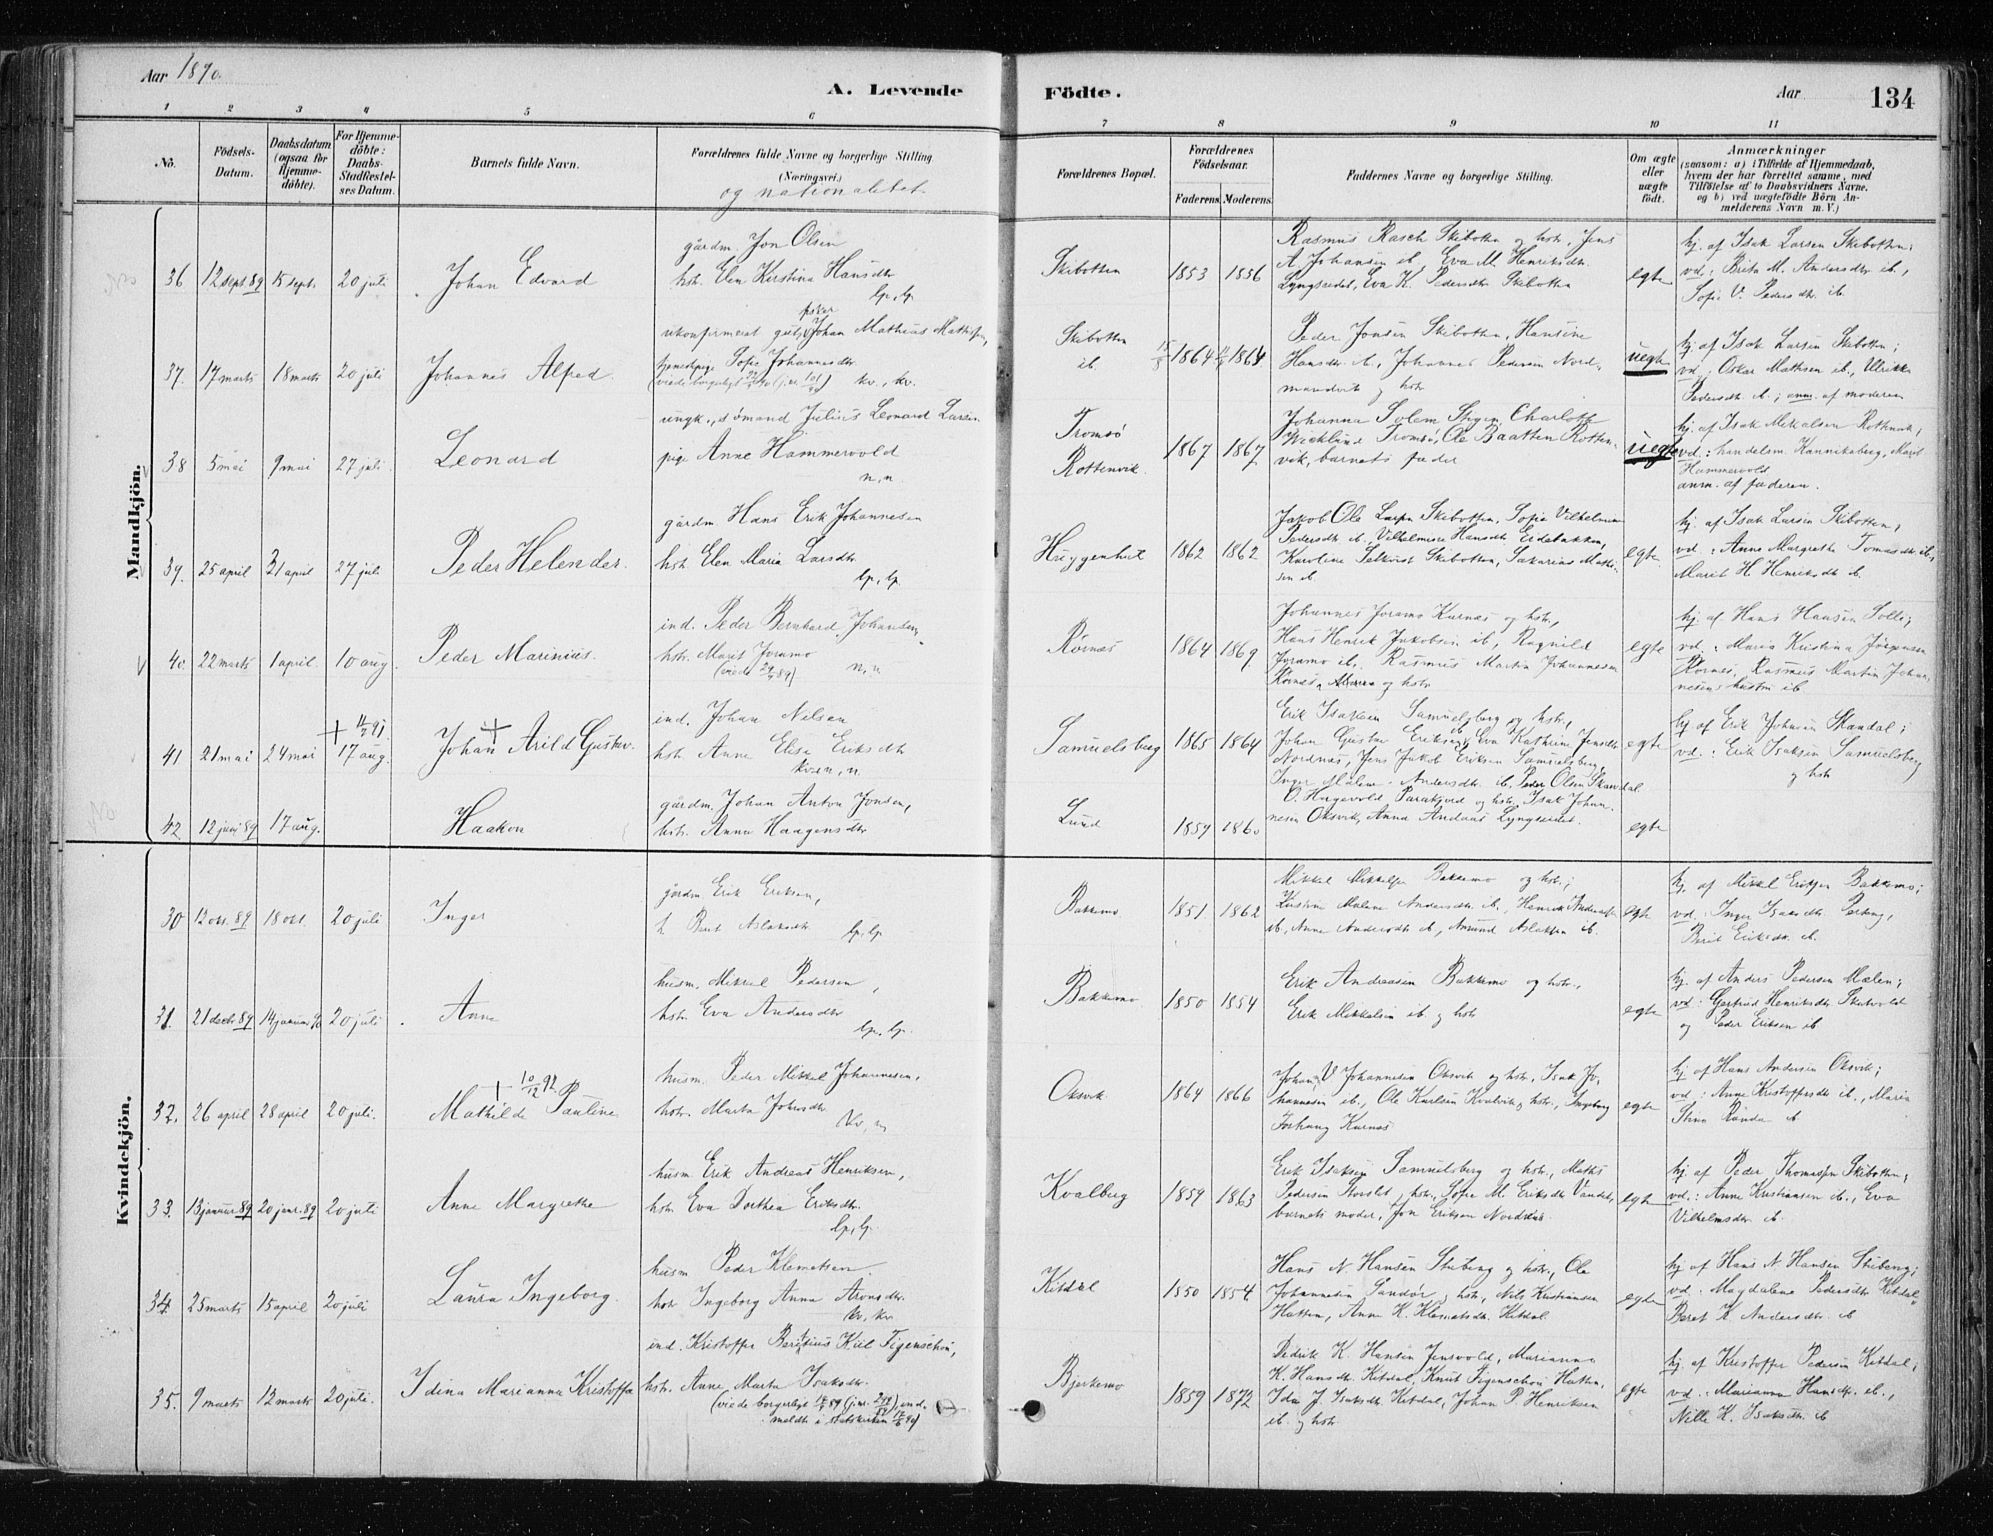 Aar 1890.
A. Levende Födte.
Aar
134
1 2 3 4 5 6 7 8 9 10 11
No.
Födsels-Datum.
Daabsdatum (ogsaa for Hjemmedöbte).
For Hjemmedöbte: Daabs-Stadfæstelses Datum.
Barnets fulde Navn.
Forældrenes fulde Navne og borgerlige Stilling (Næringsvei.)
og nationalitet.
Forældrenes Bopæl.
Forældrenes Födselsaar.
Faderens. Moderens.
Faddernes Navne og borgerlige Stilling.
Om ægte eller uægte födt.
Anmærkninger
(saasom: a) i Tilfælde af Hjemmedaab,
hvem der har forrettet samme, med
Tilföielse af to Daabsvidners Navne.
og b) ved uægtefödte Börn Anmelderens Navn m. V.)
Mandkjön.
36 12 sept 89 15 sept. 20 juli Johan Edvard
gårdm. Jon Olsen
hstr. Elen Kirstina Hansdtr
lp, lp
Skibotten 1853 1856
Rasmus Rasch Skibotten og hstr, Jens
A. Johansen ib, Eva M. Henriksdtr
Lyngseidet, Eva K. Pedersdtr Skibotten
egte
hj. af Isak Larsen Skibotten;
vd: Brita M. Andersdtr ib.,
Sofie V. Pedersdtr ib.
37. 17 marts 18 marts 20 juli Johannes Alfred.
ukonfirmeret Johan Mathius
Sofie Johannesdtr
kv., kv.
Skibotten
ib. 1864 1864
Peder Jonsen Skibotten, Hansine
Hansdtr ib., Johannes Pedersen Nord-
mandvik og hstr
uegte
hj. af Isak Larsen Skibotten;
vd: Oskar Mathisen ib., Ulrikke
Pedersdtr ib.; anm. af moderen
38 5 mai 9 mai 27 juli. Leonard
ungk., sömand Julius Leonard Larsen
pige Anne Hammervold
n, n.
Tromsö
Rottenvik. 1867 1867
Johanna Solem Charlotte
Wicklund Tromsö, Ole Baatten Rotten-
vik, barnets fader
uegte
hj. af Isak Mikalsen Rottenvik,
vd: handelsm. Kannikeberg, Marit
Hammervold
anm. af faderen.
39. 25 april 31 april 27 juli Peder Helender.
gårdm Hans Erik Johannesen
hstr. Elen Maria Larsdtr
lp, lp
1862 1862
Jakob Ole Larsen Skibotten, Sofie Vilhelmine
Pedersdtr ib, Vilhelmine Hansdtr Eidebakken,
Karoline Skibotten, Sakarias Mathi-
sen ib.
egte.
hj. af Isak Larsen Skibotten,
vd: Anne Margrethe Tomasdtr ib,
Marit H Henriksdtr ib.
40. 22 marts 1 april. 10 aug. Peder Marinius.
ind. Peder Bernhard Johansen,
hstr. Marit Joramo
n, n
Rörnæs 1864 1869
Johannes Joramo Kurnæs og hstr,
Hans Henrik Jakobsen ib, Ragnild
Joramo ib., Rasmus Martin Johannesen
Rörnæs og hstr
egte
hj. af Hans Hansen Solli;
vd: Maria Kristina Jörgensen
Rörnes, Rasmus Martin Johan-
nesens hustru ib
41 21 mai 24 mai 17 aug. Johan Arild Gustav.
ind. Johan Nilsen
hstr. Anne Elise Eriksdtr
kvæn, n
Samuelsberg 1865 1864
Erik Isaksen Samuelsberg og hstr.,
Johan Gustav Eriksen, Eva Kathrine Jensdtr
Nordnæs, Jens Jakob Eriksen Samuelsberg,
Inger Malene Andersdtr ib. Peder Olsen Skardal
egte
hj af Erik Johnsen Skardal;
vd: Erik Isaksen Samuelsberg
og hstr
42 12 juni 89 17 aug. Haakon
gårdm. Johan Anton Jonsen,
hstr. Anna Haagensdtr
Lund 1859 1860
O. Hagevold og hstr, Isak Johan-
nesen Oksvik, Anna Lyngseidet.
egte
Kvindekjön.
30 12 okt. 89 18 okt. 20 juli Inger
gårdm Erik Eriksen,
h. Berit Aslaksdtr
lp, lp
Bakkemo. 1851 1862
Mikkel Mikkelsen Bakkemo og hstr;
Kirstine Malene Andersdtr ib., Henrik Andersen
ib., Anne Andersdtr ib, Amund Aslaksen ib.
egte
hj. af Mikkel Eriksen Bakkemo;
vd: Inger Isaksdtr
Berit Eriksdtr ib.
31. 21 decbr 89 14 januar 90 20 juli Anne
husm. Mikkel Pedersen,
hstr. Eva Andersdtr
lp, lp.
Bakkemo 1850 1854
Erik Andreasen Bakkemo og hstr.,
Erik Mikkelsen ib. og hstr
egte
hj. af Anders Pedersen Mælen;
vd: Gertrud Henriksdtr
og Peder Eriksen ib
32. 26 april 28 april 20 juli. Mathilde Pauline + 10/12 92
husm. Peder Mikkel Johannesen,
hstr. Marta Johnsdtr
kv, n
Oksvik 1864 1866
Johan V Johannesen Oksvik og hstr, Isak Jo-
hannesen ib., Ole Karlsen Kvalvik og hstr, Ingeborg
Kurnæs
egte
hj. af Hans Andersen Oksvik;
vd: Anne Kristoffersdtr ib., Maria
Stina ib
33. 13 januar 89 20 janr. 89 20 juli Anne Margrethe
husm Erik Andreas Henriksen,
hstr. Eva Dorthea Eriksdtr.
lp, lp.
Kvalberg 1859 1863
Erik Isaksen Samuelsberg og hstr., Maths
Pedersen og hstr., Sofie M. Eriksdtr
barnets moder, Jon Eriksen Nordnæs.
egte
hj. af Peder Thomassen Skibotten;
vd: Anne Kristiansen ib., Eva
Vilhelmsdtr ib.
34. 25 marts 15 april 20 juli Laura Ingeborg.
husm Peder Klemetsen.
hstr Ingeborg Anna Aronsdtr.
kv, kv
Kitdal 1850 1854
Hans N Hansen Stubeng og hstr., Ole
Johannesen Sandör og hstr, Nils Kristiansen
Hatten, Anne K. Klemetsdtr Kitdal.
egte
hj. af Hans N Hansen Stubeng;
vd: Magdalene Pedersdtr Kitdal,
Beret K. Andersdtr ib
35. 9 marts 12 marts 20 juli. Idina Marianna Kristoffa
ind. Kristoffer Kiil Figenschou,
hstr. Anne Marta Isaksdtr.
(viede borgerligt 89 ind-
meldte i statskirken 90)
Bjerkemo 1859 1872
Didrik K. Hansen Jensvold, Marianna
K. Hansdtr Kitdal, Knut Figenschou Hatten,
Ida J. Isaksdtr Kitdal, Johan P. Henriksen
ib. og hstr
egte
hj. af Kristoffer Pedersen Kitdal;
vd: Marianna Hansdtr ib.,
Nille K. Isaksdtr. ib